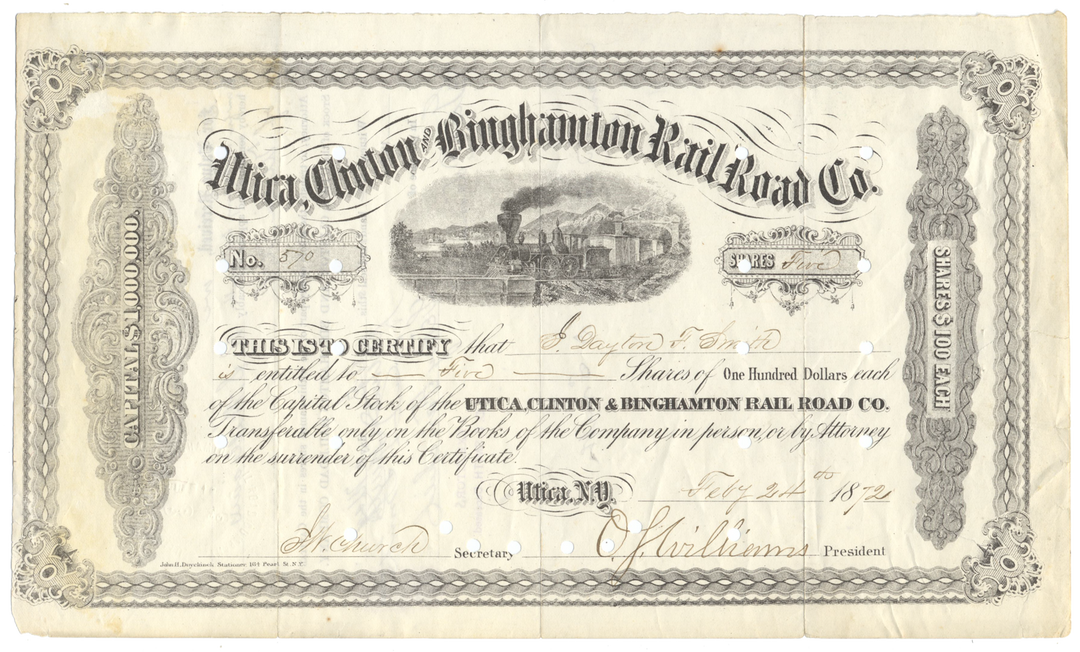 Utica, Clinton AND Binghamton Rail Road Co.
No. 570
SHARES Five
CAPITAL $1,000,000.
SHARES $100 EACH
THIS IS TO CERTIFY that J. Dayton F. Smith
is entitled to Five Shares of One Hundred Dollars each
of the Capital Stock of the UTICA, CLINTON & BINGHAMTON RAIL ROAD CO.
Transferable only on the Books of the Company in person, or by Attorney
on the surrender of this Certificate.
Utica, N.Y. Feby 24th 1872
Church Secretary Williams President
John H. Duyckinck Stationer 164 Pearl St. N.Y.